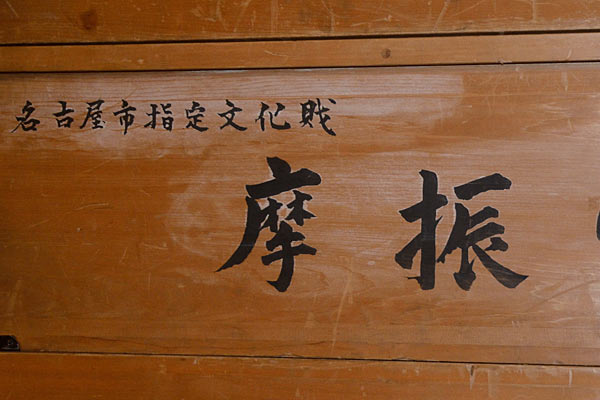 名古屋市指定文化財
摩振